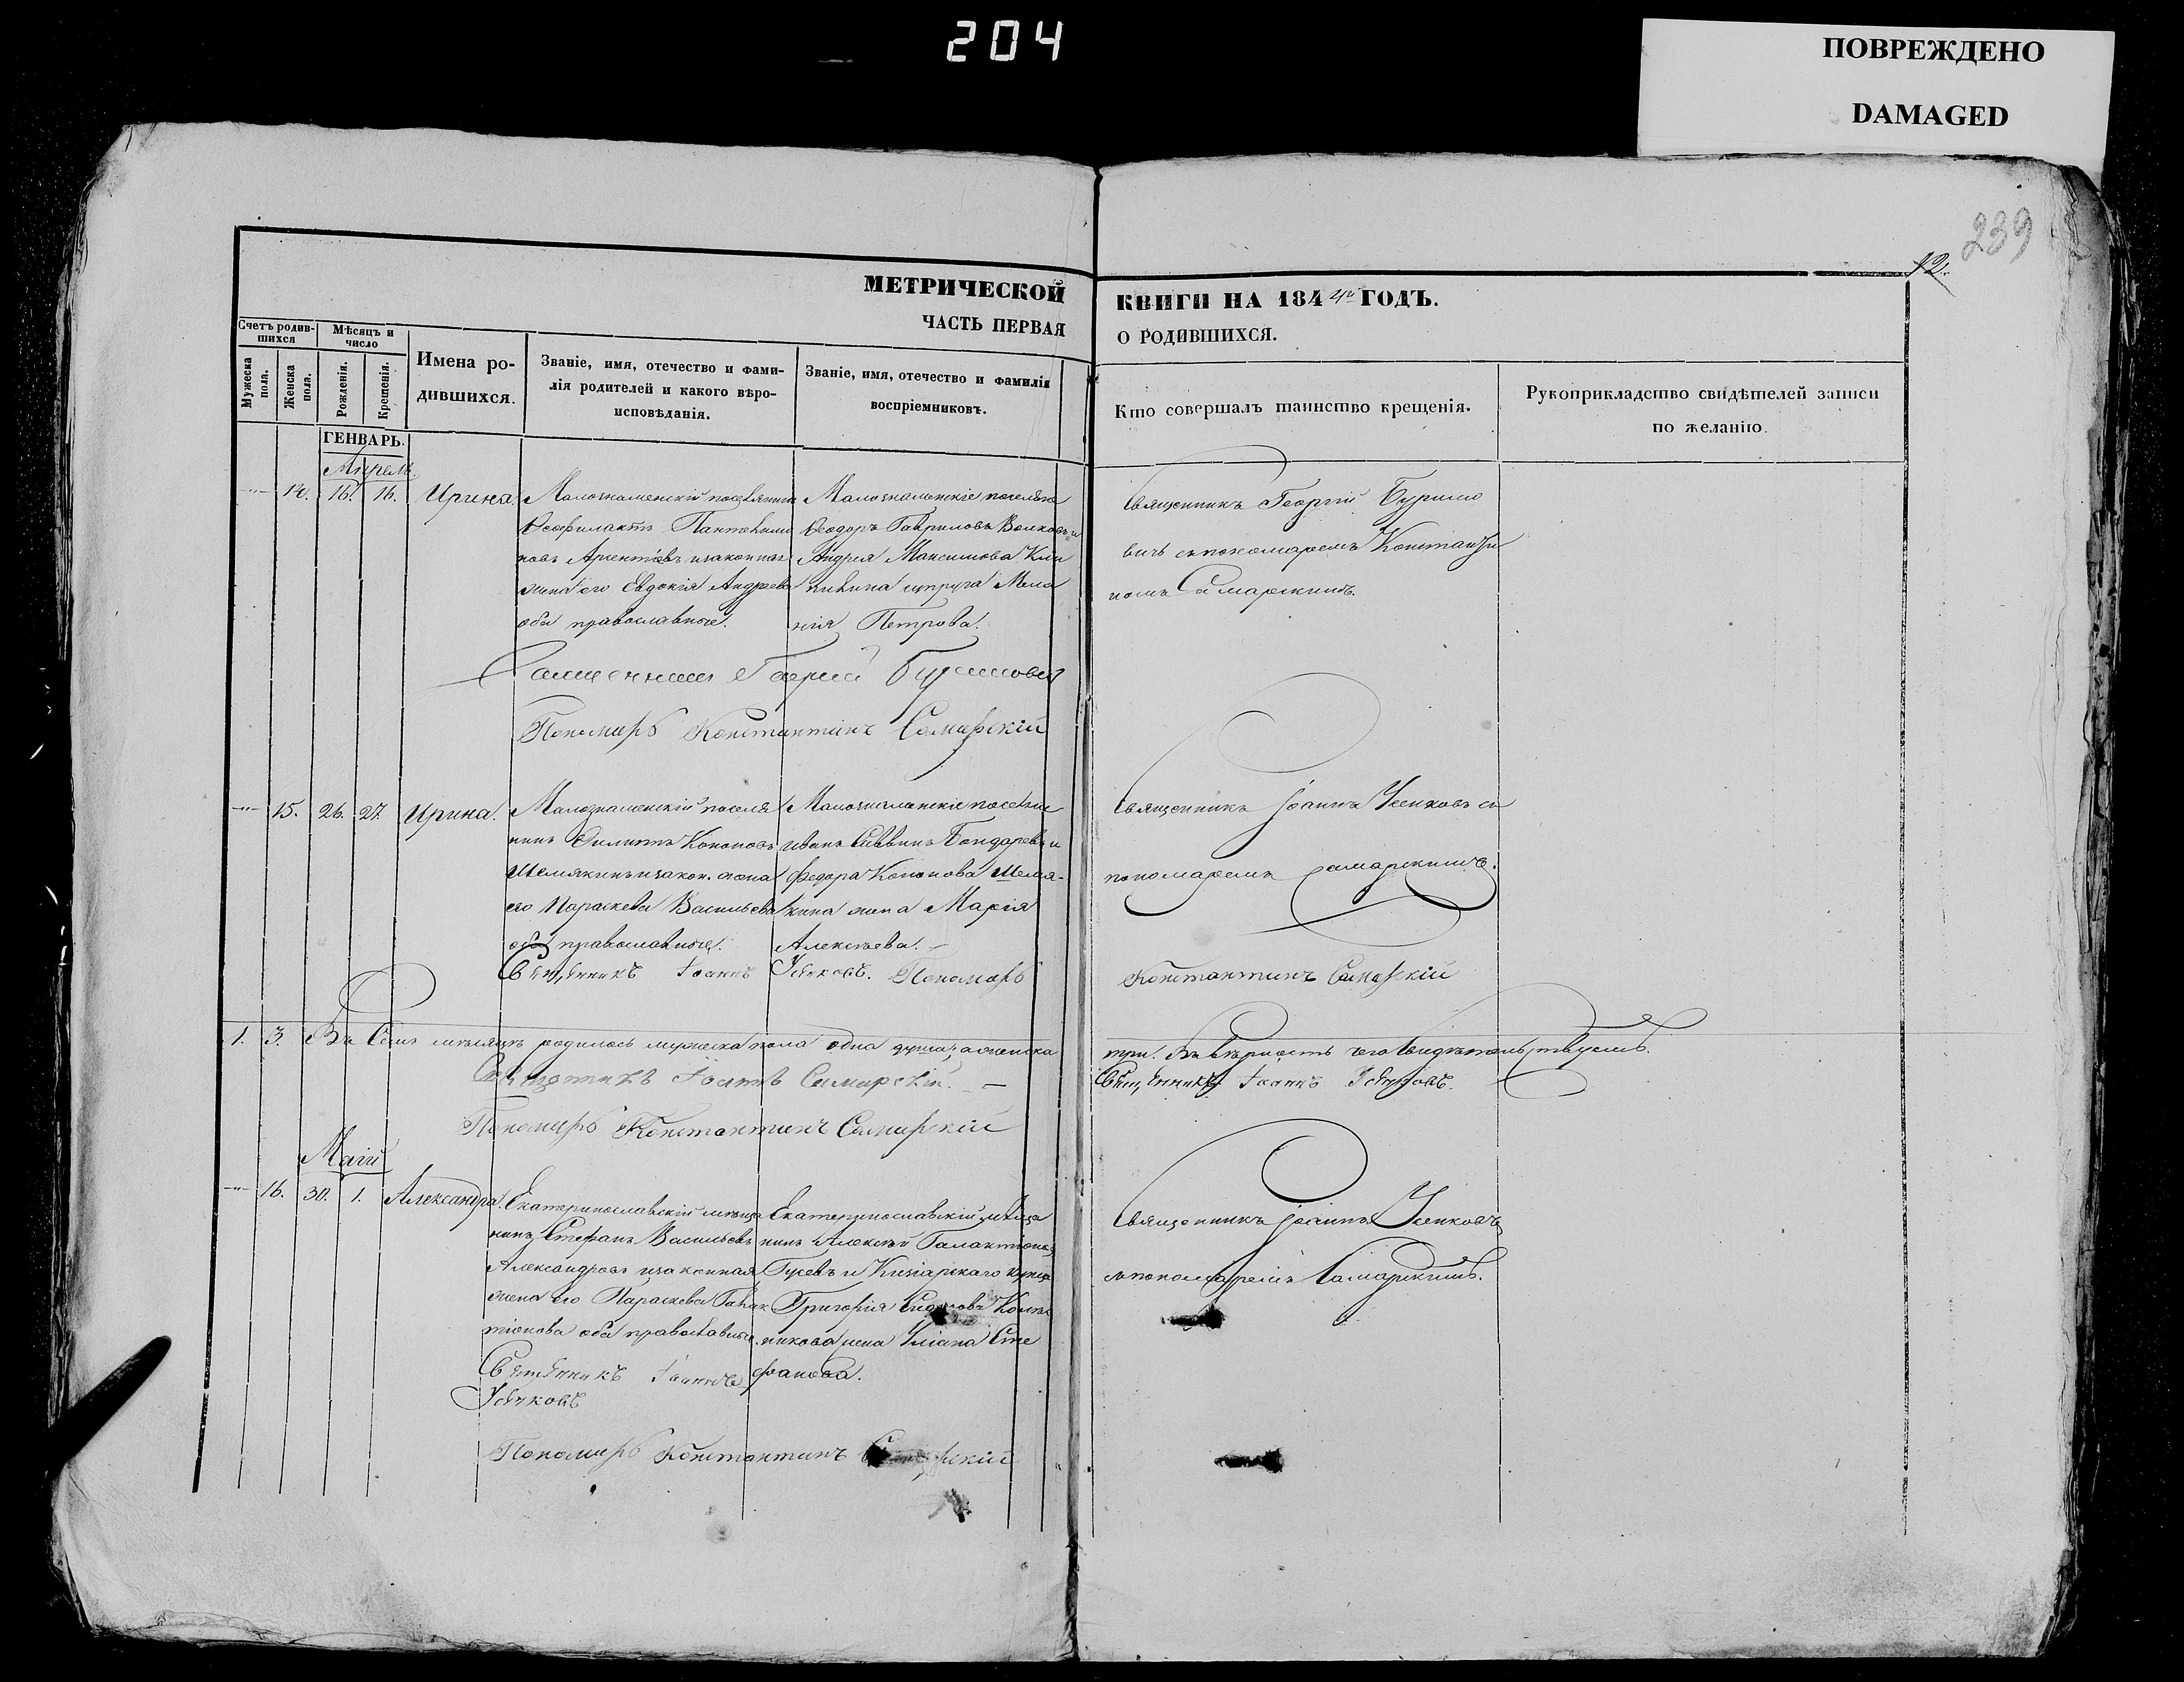 204
ПОВРЕЖДЕНО
DAMAGED
239
12.
МЕТРИЧЕСКОЙ
КНИГИ НА 1844й ГОДЪ.
ЧАСТЬ ПЕРВАЯ
О РОДИВШИХСЯ.
Счетъ родив-
шихся
Мѣсяцъ и
число
Мужеска
пола.
Женска
пола.
Рожденія.
Крещенія.
Имена ро-
дившихся.
Званіе, имя, отечество и фами-
лія родителей и какого вѣро-
исповѣданія.
Званіе, имя, отечество и фамилія
воспріемниковъ.
Кто совершалъ таинство крещенія.
Рукоприкладство свидѣтелей записи
по желанію.
ГЕНВАРЬ.
Апрель.
14. 16. 16. Ирина.
Малознаменскій поселянинъ
Феофилактъ Пантелимо
новъ Арентовъ и законная
жена его Евдокія Андреева
оба православные.
Малознаменскіе поселяне
Феодоръ Гавриловъ Волковъ и
Андрея Максимова
супруга Мела
нія Петрова.
Священникъ Георгій Буримо
вичъ съ пономаремъ Константи
номъ Самарскимъ.
Священникъ Георгій Буримовичъ
Пономарь Константинъ Самарскій
15. 26. 27. Ирина.
Малознаменскій поселя
нинъ Филиппъ Кононовъ
Шемякинъ и закон. жена
его Параскева Васильева
оба православные.
Малознаменскіе поселяне
Иванъ Саввинъ Бондаревъ и
Федора Кононова Шемя-
кина жена Марія
Алексѣева.
Священникъ Іоаннъ Усенковъ съ
пономаремъ Самарскимъ.
Священникъ Іоаннъ Усенковъ. Пономарь
Константинъ Самарскій
1. 3. Въ Семъ мѣсяцѣ родилось мужеска пола одна душа, а женска
три. Въ вѣрности чего Свидѣтельствуемъ.
Священникъ Іоаннъ Самарскій.
Священникъ Іоаннъ Усенковъ.
Пономарь Константинъ Самарскій
Маій
16. 30. 1. Александра.
Екатеринославскій мѣща
нинъ Стефанъ Васильевъ
Александровъ и законная
жена его Параскева Галак
тіонова оба православные.
Екатеринославскій мѣща
нинъ Алексѣй Галактіоновъ
Гусевъ и купца
Григорія Сидорова
никова жена Уліана Сте
фанова.
Священникъ Іоаннъ Усенковъ
съ пономаремъ Самарскимъ.
Священникъ Іоаннъ
Усенковъ
Пономарь Константинъ Самарскій